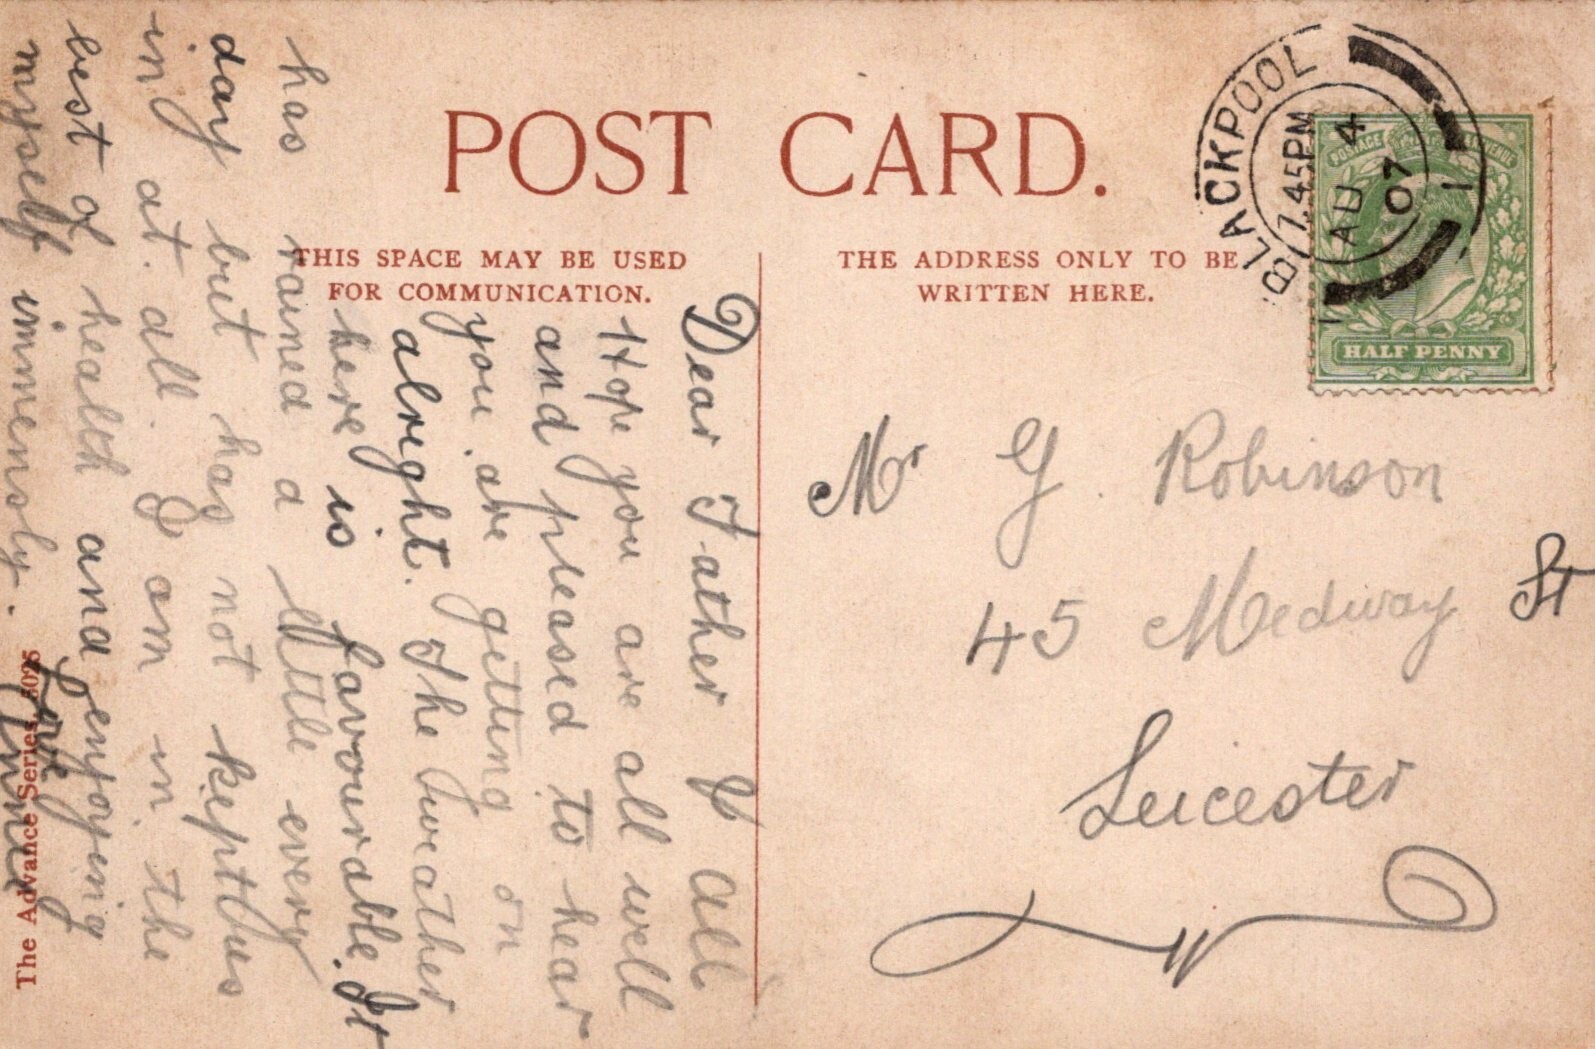 POST CARD.
THIS SPACE MAY BE USED
FOR COMMUNICATION.
THE ADDRESS ONLY TO BE
WRITTEN HERE.
BLACKPOOL
7.45PM
AU 4
07
1
POSTAGE
HALF PENNY
Mr G. Robinson
45 Medway St
Leicester
Dear Father & All
Hope you are all well
and pleased to hear
you are getting on
alright. The weather
here is favourable. It
has rained a little every
day but has not kept us
in at all. I am in the
best of health and enjoying
myself immensly.
The Advance Series